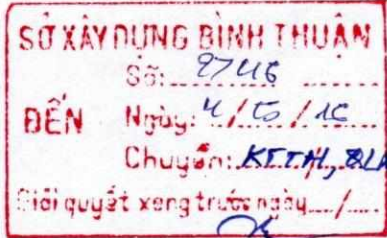 SỞ XÂY DỰNG BÌNH THUẬN
Số: 2746
ĐẾN Ngày: 4/5/16
Chuyển: KTTH,
Giải quyết xong trước ngày..../....